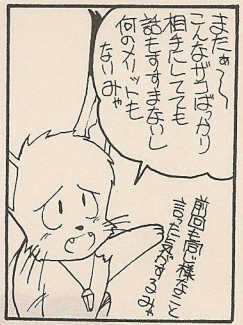 またぁ〜〜
こんなザコばっかり
相手にしてても
話もすすまないし
何のメリットも
ないみゃ
前回も同じ様なこと
言った気がするみゃ